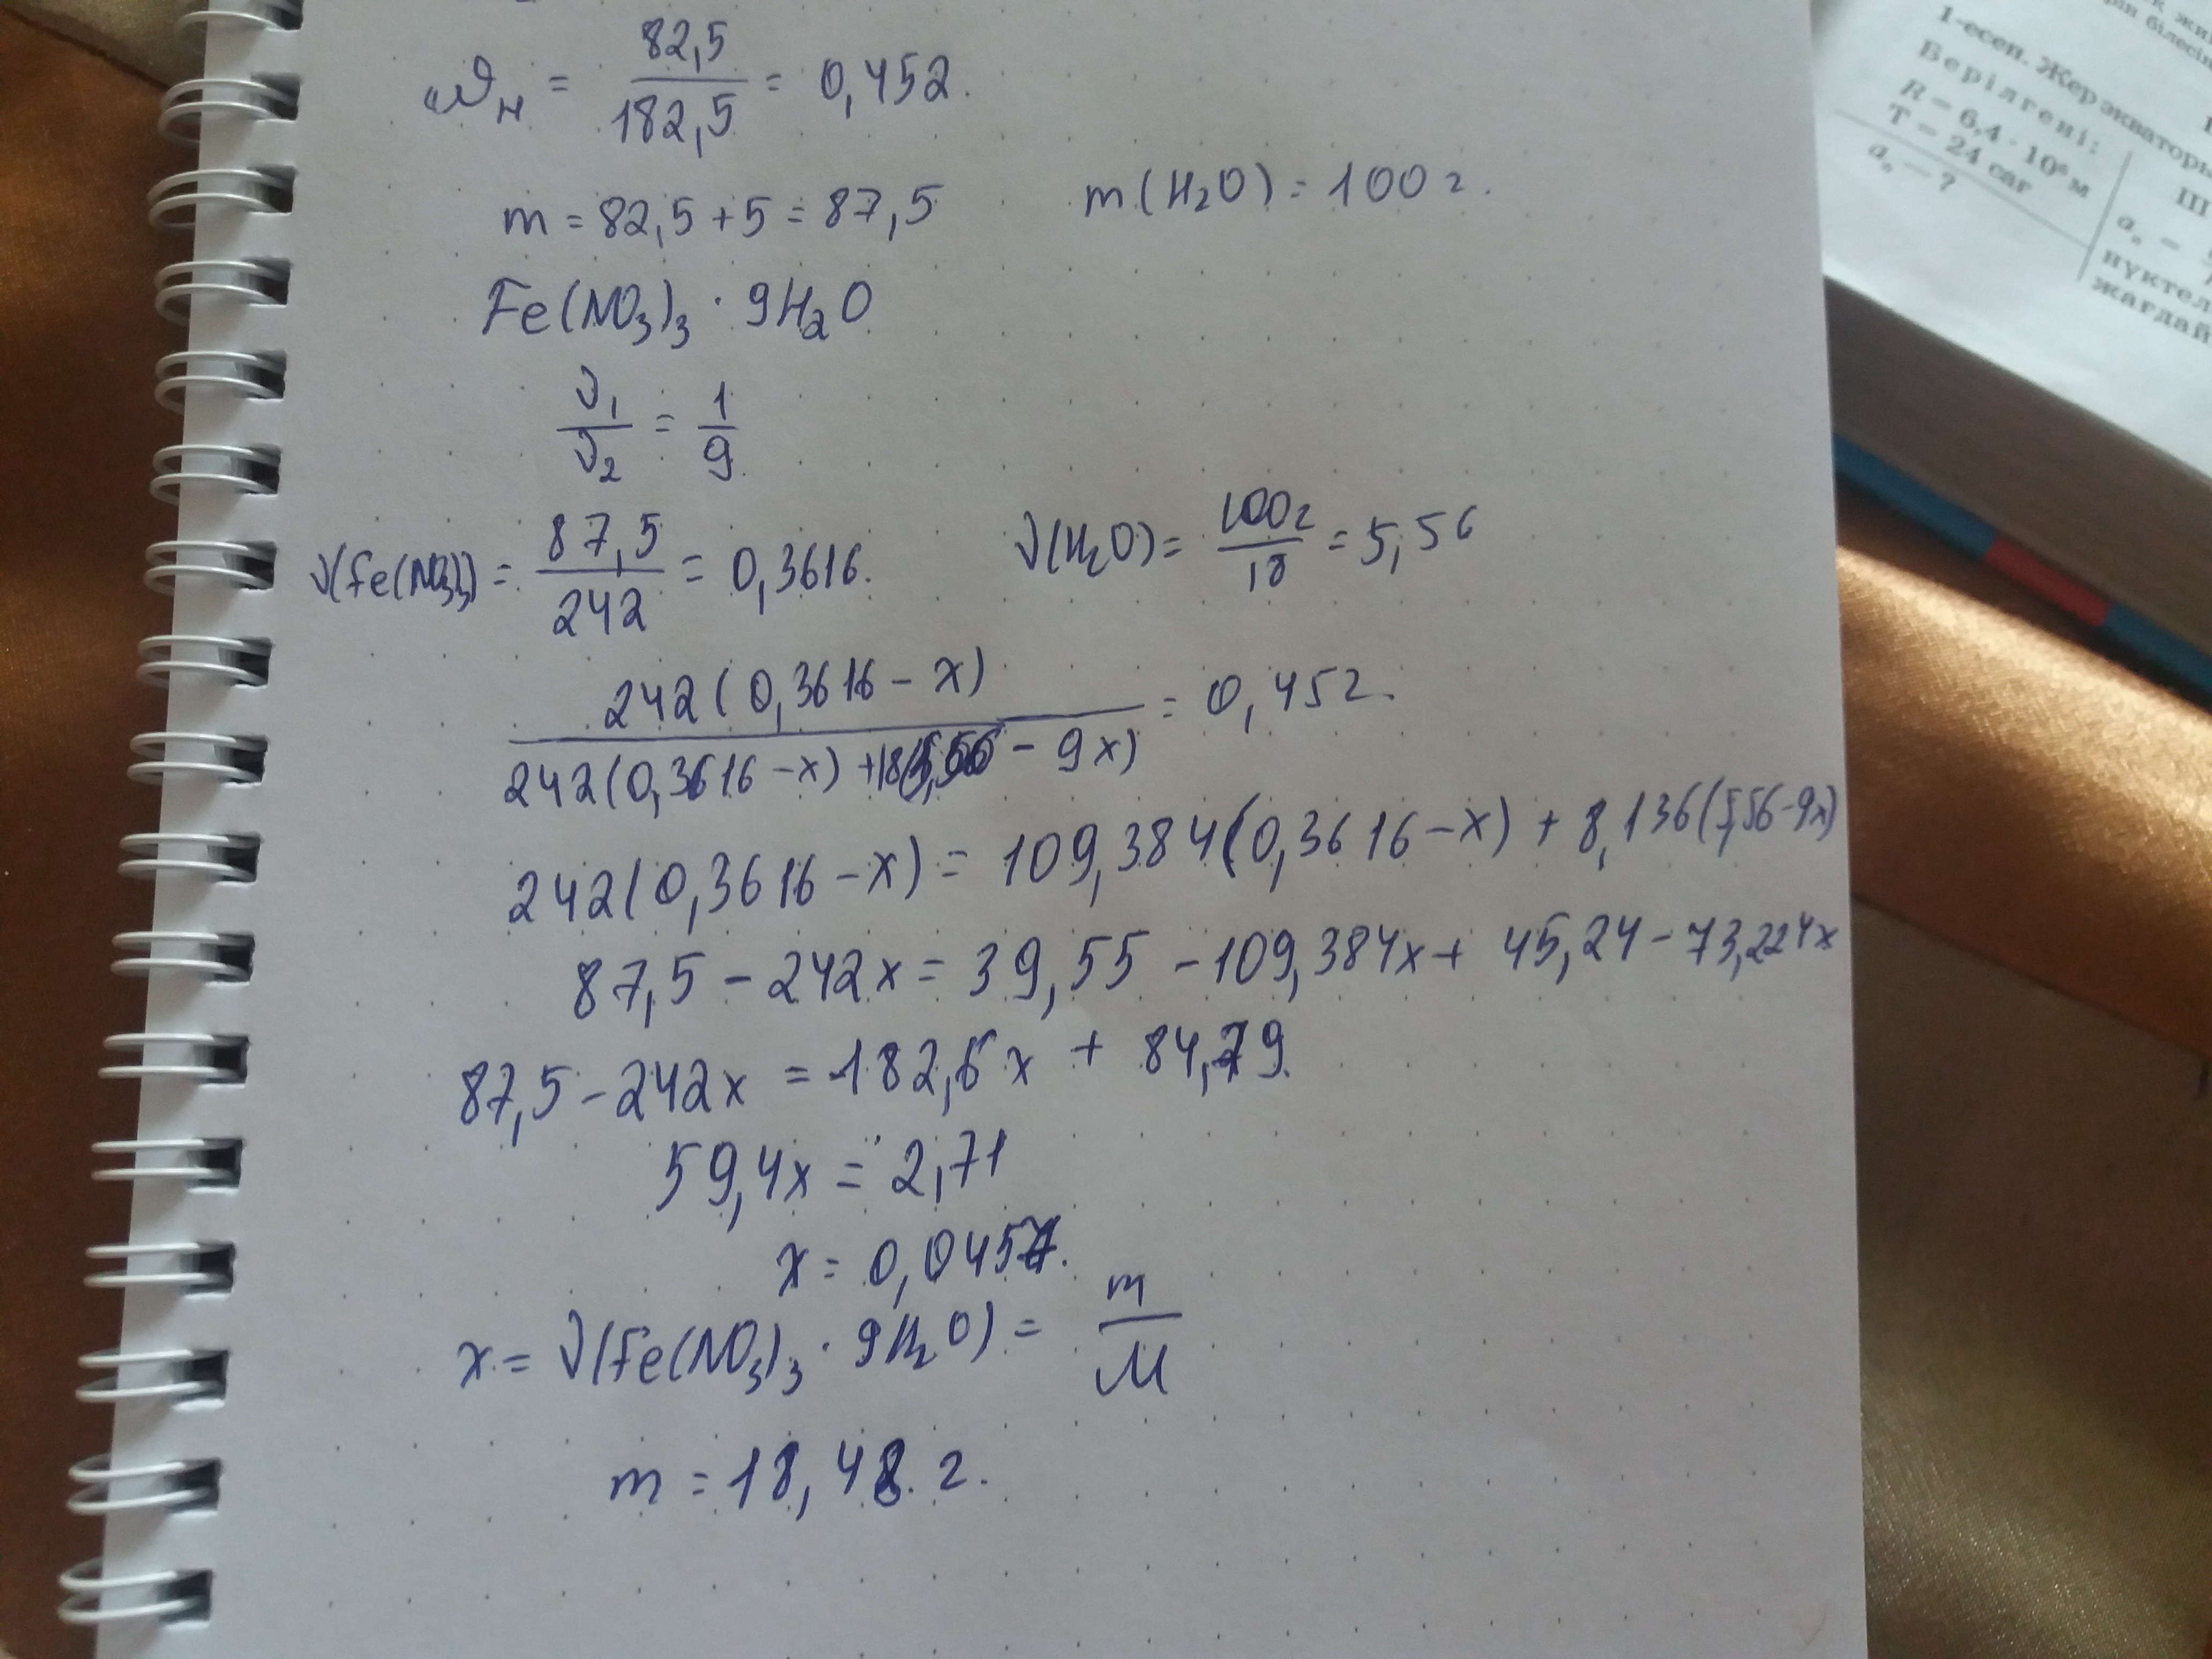 ω_н = 82,5/182,5 = 0,452.
m = 82,5 + 5 = 87,5 m(H₂O) = 100 г.
Fe(NO₃)₃ · 9H₂O
ν₁/ν₂ = 1/9
ν(Fe(NO₃)₃) = 87,5/242 = 0,3616. ν(H₂O) = 100г/18 = 5,56
242(0,3616 − x)/242(0,3616 − x) + 18(5,56 − 9x) = 0,452.
242(0,3616 − x) = 109,384(0,3616 − x) + 8,136(5,56 − 9x)
87,5 − 242x = 39,55 − 109,384x + 45,24 − 73,224x
87,5 − 242x = −182,6x + 84,79.
59,4x = 2,71
x = 0,0457.
x = ν(Fe(NO₃)₃ · 9H₂O) = m/M
m = 18,48 г.
1-есеп. Жер экваторы
Берілгені:
R = 6,4 · 10⁶ м
T = 24 сағ
aₙ — ?
Ш
aₙ =
нүктел
жағдай